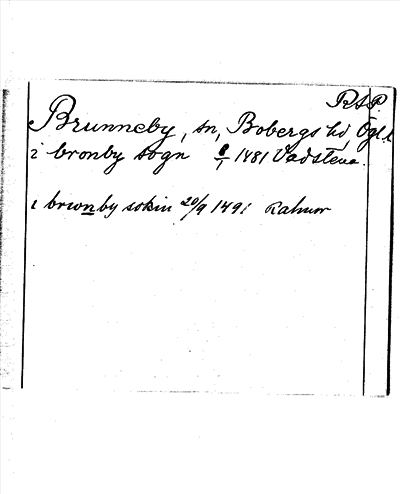 RAP.
Brunneby, sn, Bobergs hd, Ögl.
i bronby sogn 8/1 1481 Vadstena.
i brwnby sokin 20/9 1491 Kalmar